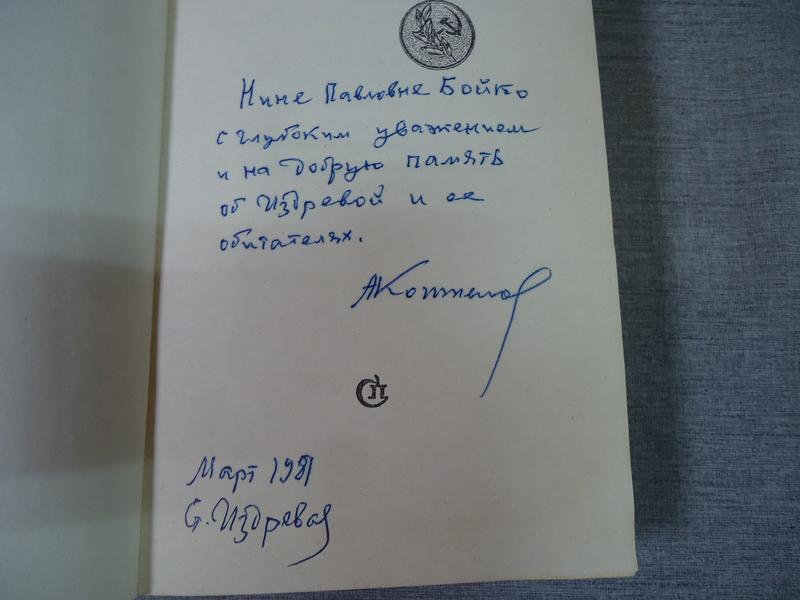 Нине Павловне Бойко
с глубоким уважением
и на добрую память
об Издревой и ее
обитателях.
АКоптелов
СП
Март 1981
Ст. Издревая